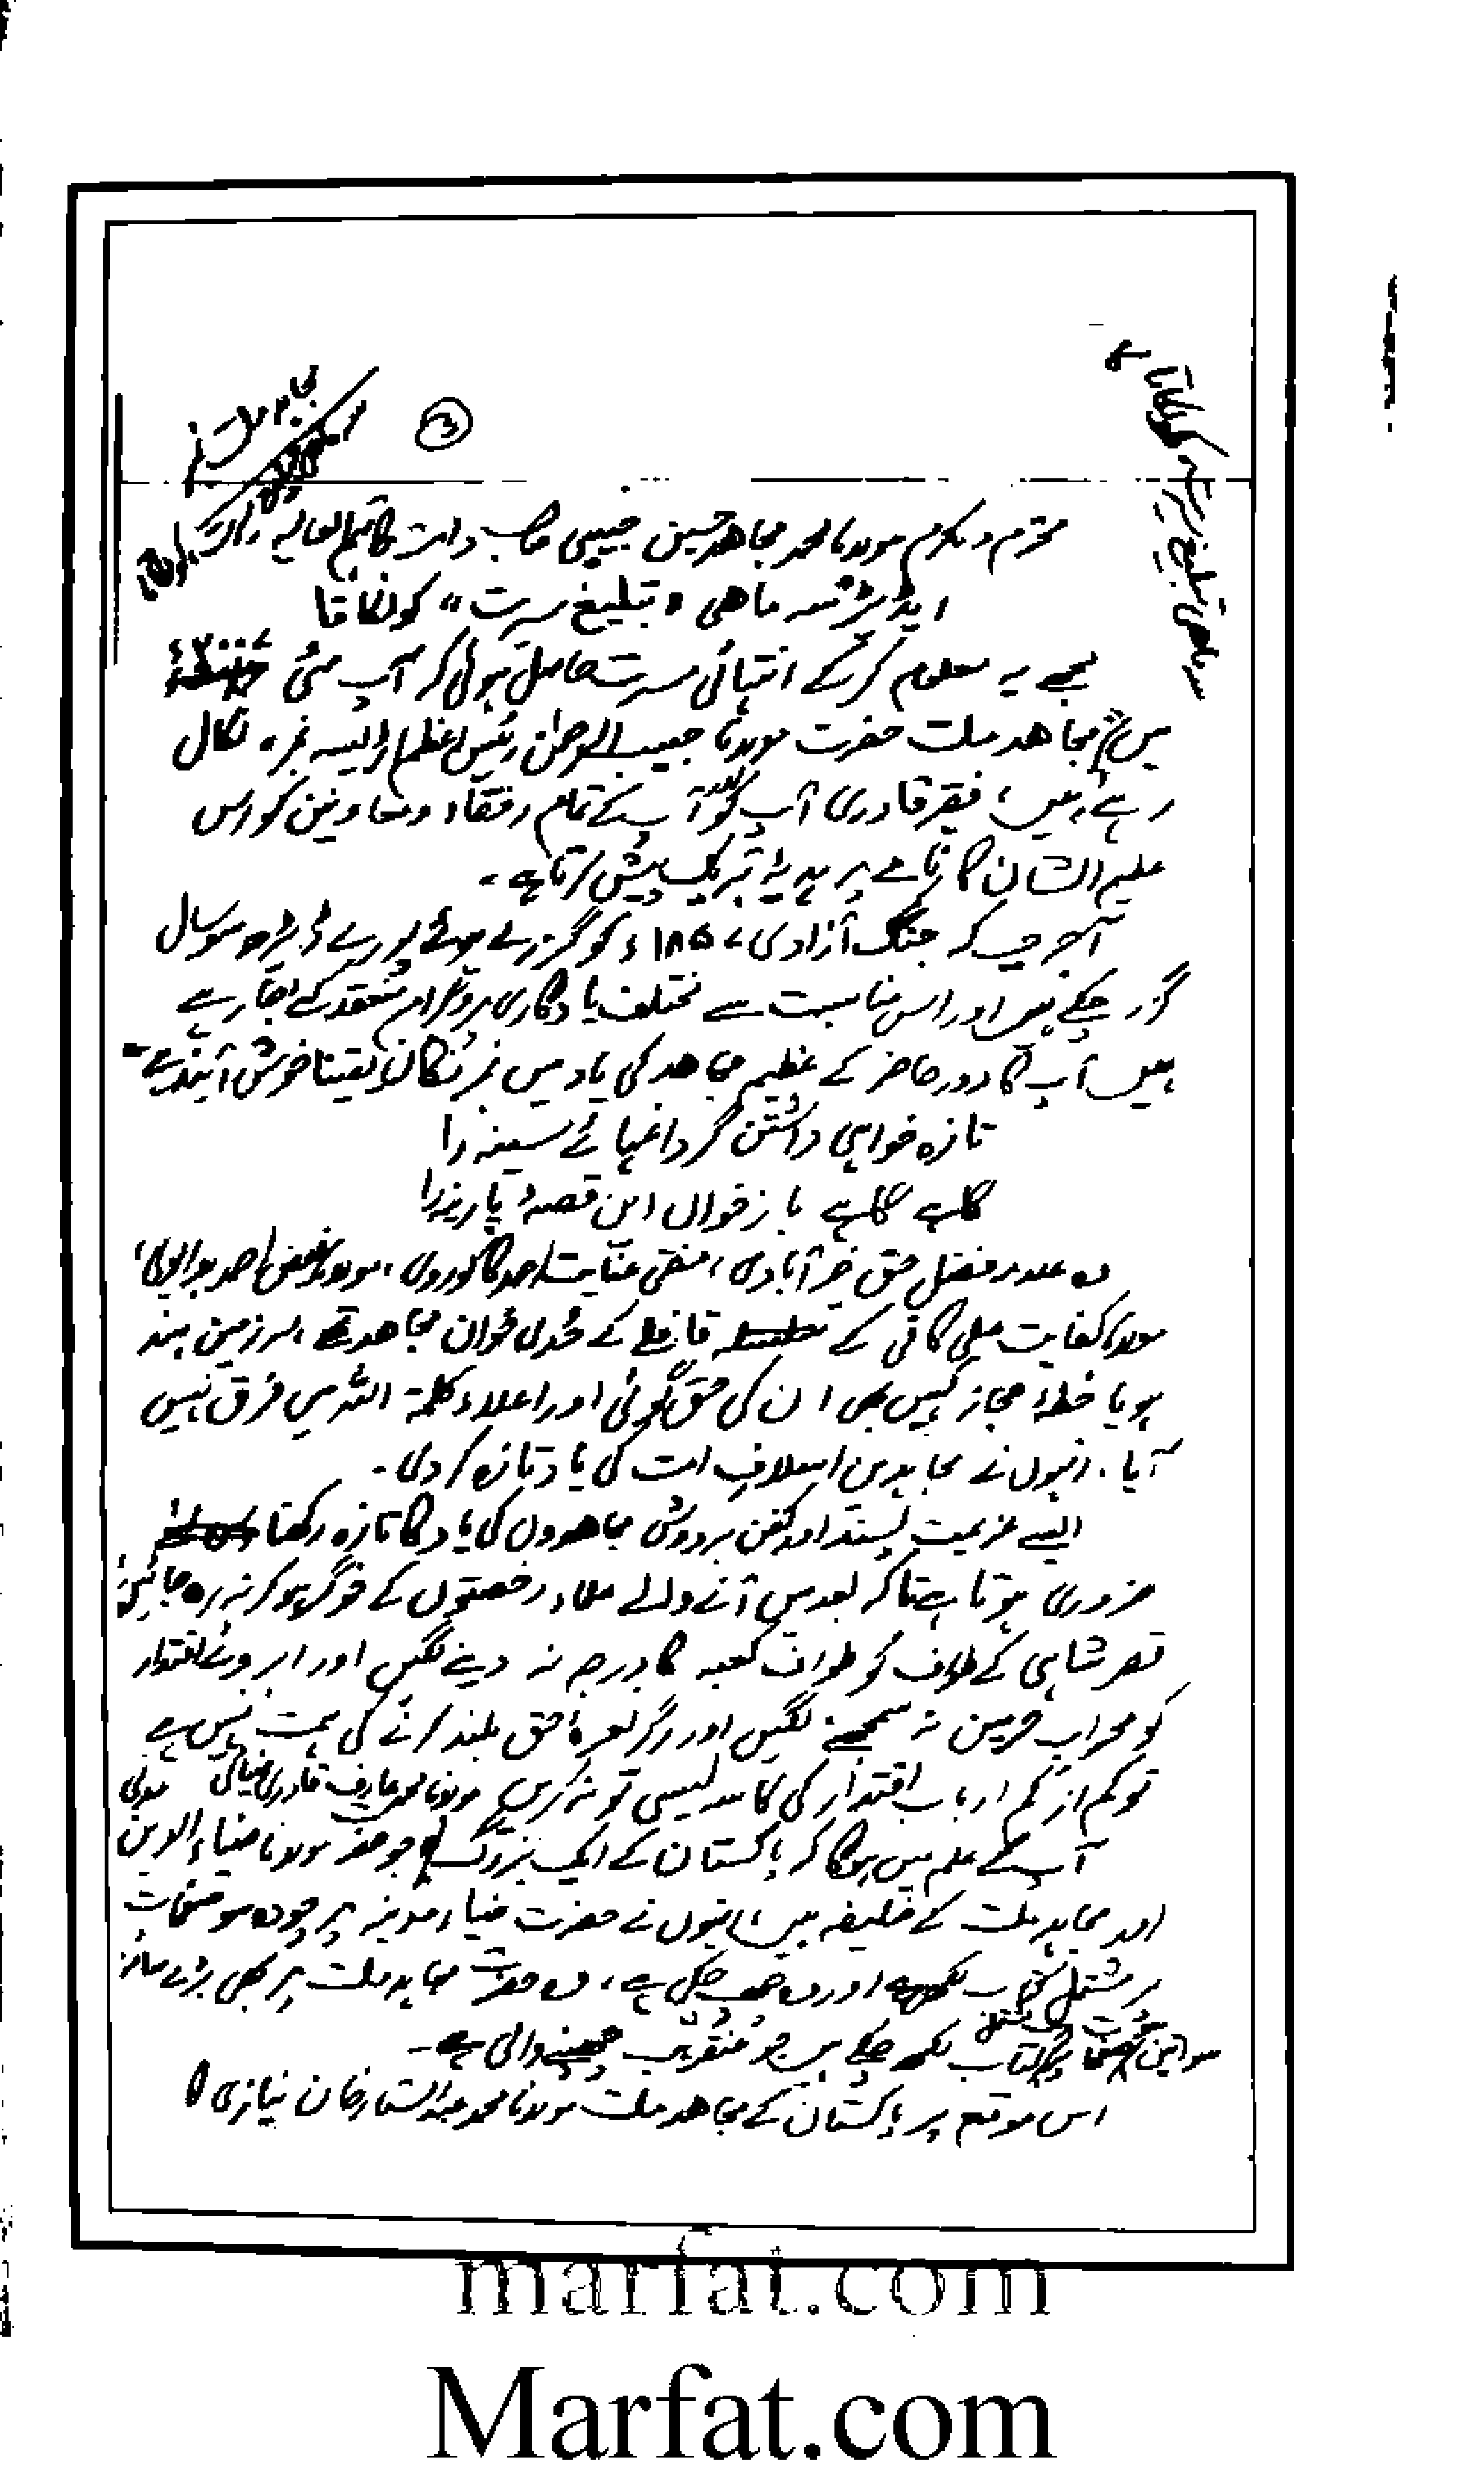 سہ ماہی تبلیغ سیرت کولکاتا
محترم و مکرم مولانا محمد مجاهد حسین حبیبی صاحب دامت برکاتہم العالیہ
ایڈیٹر سہ ماهی "تبلیغ سیرت" کولکاتا
مجھے یہ معلوم کر کے انتہائی مسرت حاصل ہوئی کہ آپ مئی
میں مجاهد ملت حضرت مولانا حبیب الرحمن رئیس اعظم اڑیسہ نمبر نکال
رہے ہیں، فقیر قادری آپ کو اور آپ کے تمام رفقاء و معاونین کو اس
عظیم الشان کارنامے پر ہدیۂ تبریک پیش کرتا ہے۔
آج جب کہ جنگ آزادی ۱۸۵۷ء کو گزرے ہوئے پورے ڈیڑھ سو سال
گزر چکے ہیں اور اس مناسبت سے مختلف یادگاری پروگرام منعقد کئے جا رہے
ہیں آپ کا دور حاضر کے عظیم مجاهد کی یاد میں نمبر نکالنا یقینا خوش آئند ہے۔
تازہ خواہی داشتن گر داغہائے سینہ را
گاہے گاہے باز خواں این قصۂ پارینہ را
وہ علامہ فضل حق خیر آبادی، مفتی عنایت احمد کاکوروی، مولانا فیض احمد بدایونی،
مولانا کفایت علی کافی کے قافلے کے حُدی خوان مجاهد تھے، سرزمین ہند
ہو یا خطۂ حجاز کہیں بھی ان کی حق گوئی اور اعلاء کلمۃ اللہ میں فرق نہیں
آیا۔ انہوں نے مجاہدین اسلافِ امت کی یاد تازہ کر دی۔
ایسے عزیمت پسند اور کفن بردوش مجاهدوں کی یاد کا تازہ رکھنا
ضروری ہوتا ہے تاکہ بعد میں آنے والے علماء رخصتوں کے خوگر ہو کر نہ رہ جائیں،
قصر شاہی کے طواف کو طواف کعبہ کا درجہ نہ دینے لگیں اور ابروئے اقتدار
کو محراب حرمین نہ سمجھنے لگیں اور اگر نعرۂ حق بلند کرنے کی ہمت نہیں ہے
تو کم از کم ارباب اقتدار کی کاسہ لیسی تو نہ کریں
مولانا محمد عارف قادری ضیائی
آپ کے علم میں ہوگا کہ پاکستان کے ایک بزرگ جو حضرت مولانا ضیاء الدین مدنی
اور مجاہد ملت کے خلیفہ ہیں، انہوں نے حضرت ضیاء مدینہ پر چودہ سو صفحات
پر مشتمل کتاب لکھی ہے اور وہ چھپ چکی ہے، وہ حضرت مجاہد ملت پر بھی بڑے سائز
کتاب لکھ چکے ہیں جو عنقریب چھپنے والی ہے۔
اس موقع پر پاکستان کے مجاهد ملت مولانا محمد عبد الستار خان نیازی کا
marfat.com
Marfat.com